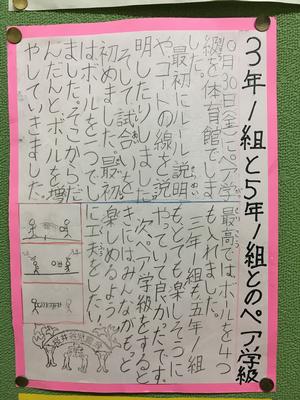 3年1組と5年1組とのペア学級
10月30日(金)にペア学
級を体育館でしま
した。
最初にルール説明
やコートの線を説
明したりしました
そして試合いを
初めました。最初
はボールを一つでし
ました。そこからだ
んだんとボールを増
やしていきました。
最高ではボールを4つ
も入れました。
三年一組も五年一組
もとても楽しそうに
やっていて良かたです。
次ペア学級をすると
きにはみんながもっと
楽しめるよう
に工夫をしたい